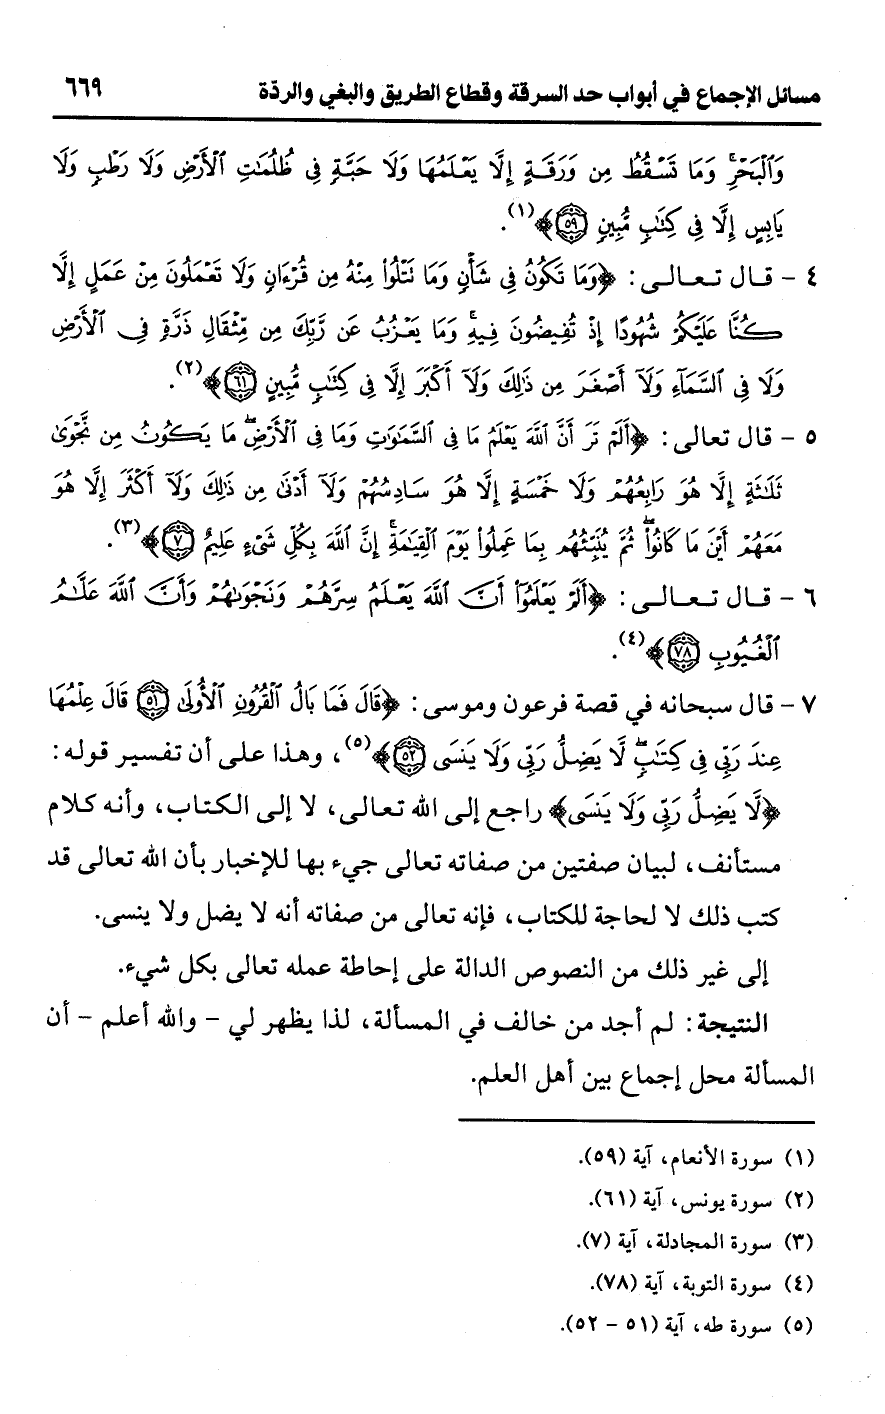 مسائل الإجماع في أبواب حد السرقة وقطاع الطريق والبغي والردّة ٦٦٩
وَٱلْبَحْرِۚ وَمَا تَسْقُطُ مِن وَرَقَةٍ إِلَّا يَعْلَمُهَا وَلَا حَبَّةٍ فِى ظُلُمَٰتِ ٱلْأَرْضِ وَلَا رَطْبٍ وَلَا
يَابِسٍ إِلَّا فِى كِتَٰبٍ مُّبِينٍ ٥٩﴾(١).
٤ - قال تعالى: ﴿وَمَا تَكُونُ فِى شَأْنٍ وَمَا تَتْلُوا۟ مِنْهُ مِن قُرْءَانٍ وَلَا تَعْمَلُونَ مِنْ عَمَلٍ إِلَّا
كُنَّا عَلَيْكُمْ شُهُودًا إِذْ تُفِيضُونَ فِيهِۚ وَمَا يَعْزُبُ عَن رَّبِّكَ مِن مِّثْقَالِ ذَرَّةٍ فِى ٱلْأَرْضِ
وَلَا فِى ٱلسَّمَآءِ وَلَآ أَصْغَرَ مِن ذَٰلِكَ وَلَآ أَكْبَرَ إِلَّا فِى كِتَٰبٍ مُّبِينٍ ٦١﴾(٢).
٥ - قال تعالى: ﴿أَلَمْ تَرَ أَنَّ ٱللَّهَ يَعْلَمُ مَا فِى ٱلسَّمَٰوَٰتِ وَمَا فِى ٱلْأَرْضِۖ مَا يَكُونُ مِن نَّجْوَىٰ
ثَلَٰثَةٍ إِلَّا هُوَ رَابِعُهُمْ وَلَا خَمْسَةٍ إِلَّا هُوَ سَادِسُهُمْ وَلَآ أَدْنَىٰ مِن ذَٰلِكَ وَلَآ أَكْثَرَ إِلَّا هُوَ
مَعَهُمْ أَيْنَ مَا كَانُوا۟ۖ ثُمَّ يُنَبِّئُهُم بِمَا عَمِلُوا۟ يَوْمَ ٱلْقِيَٰمَةِۚ إِنَّ ٱللَّهَ بِكُلِّ شَىْءٍ عَلِيمٌ ٧﴾(٣).
٦ - قال تعالى: ﴿أَلَمْ يَعْلَمُوٓا۟ أَنَّ ٱللَّهَ يَعْلَمُ سِرَّهُمْ وَنَجْوَىٰهُمْ وَأَنَّ ٱللَّهَ عَلَّٰمُ
ٱلْغُيُوبِ ٧٨﴾(٤).
٧ - قال سبحانه في قصة فرعون وموسى: ﴿قَالَ فَمَا بَالُ ٱلْقُرُونِ ٱلْأُولَىٰ ٥١ قَالَ عِلْمُهَا
عِندَ رَبِّى فِى كِتَٰبٍۖ لَّا يَضِلُّ رَبِّى وَلَا يَنسَى ٥٢﴾(٥)، وهذا على أن تفسير قوله:
﴿لَّا يَضِلُّ رَبِّى وَلَا يَنسَى﴾ راجع إلى الله تعالى، لا إلى الكتاب، وأنه كلام
مستأنف، لبيان صفتين من صفاته تعالى جيء بها للإخبار بأن الله تعالى قد
كتب ذلك لا لحاجة للكتاب، فإنه تعالى من صفاته أنه لا يضل ولا ينسى.
إلى غير ذلك من النصوص الدالة على إحاطة عمله تعالى بكل شيء.
النتيجة: لم أجد من خالف في المسألة، لذا يظهر لي - والله أعلم - أن
المسألة محل إجماع بين أهل العلم.
(١) سورة الأنعام، آية (٥٩).
(٢) سورة يونس، آية (٦١).
(٣) سورة المجادلة، آية (٧).
(٤) سورة التوبة، آية (٧٨).
(٥) سورة طه، آية (٥١ - ٥٢).